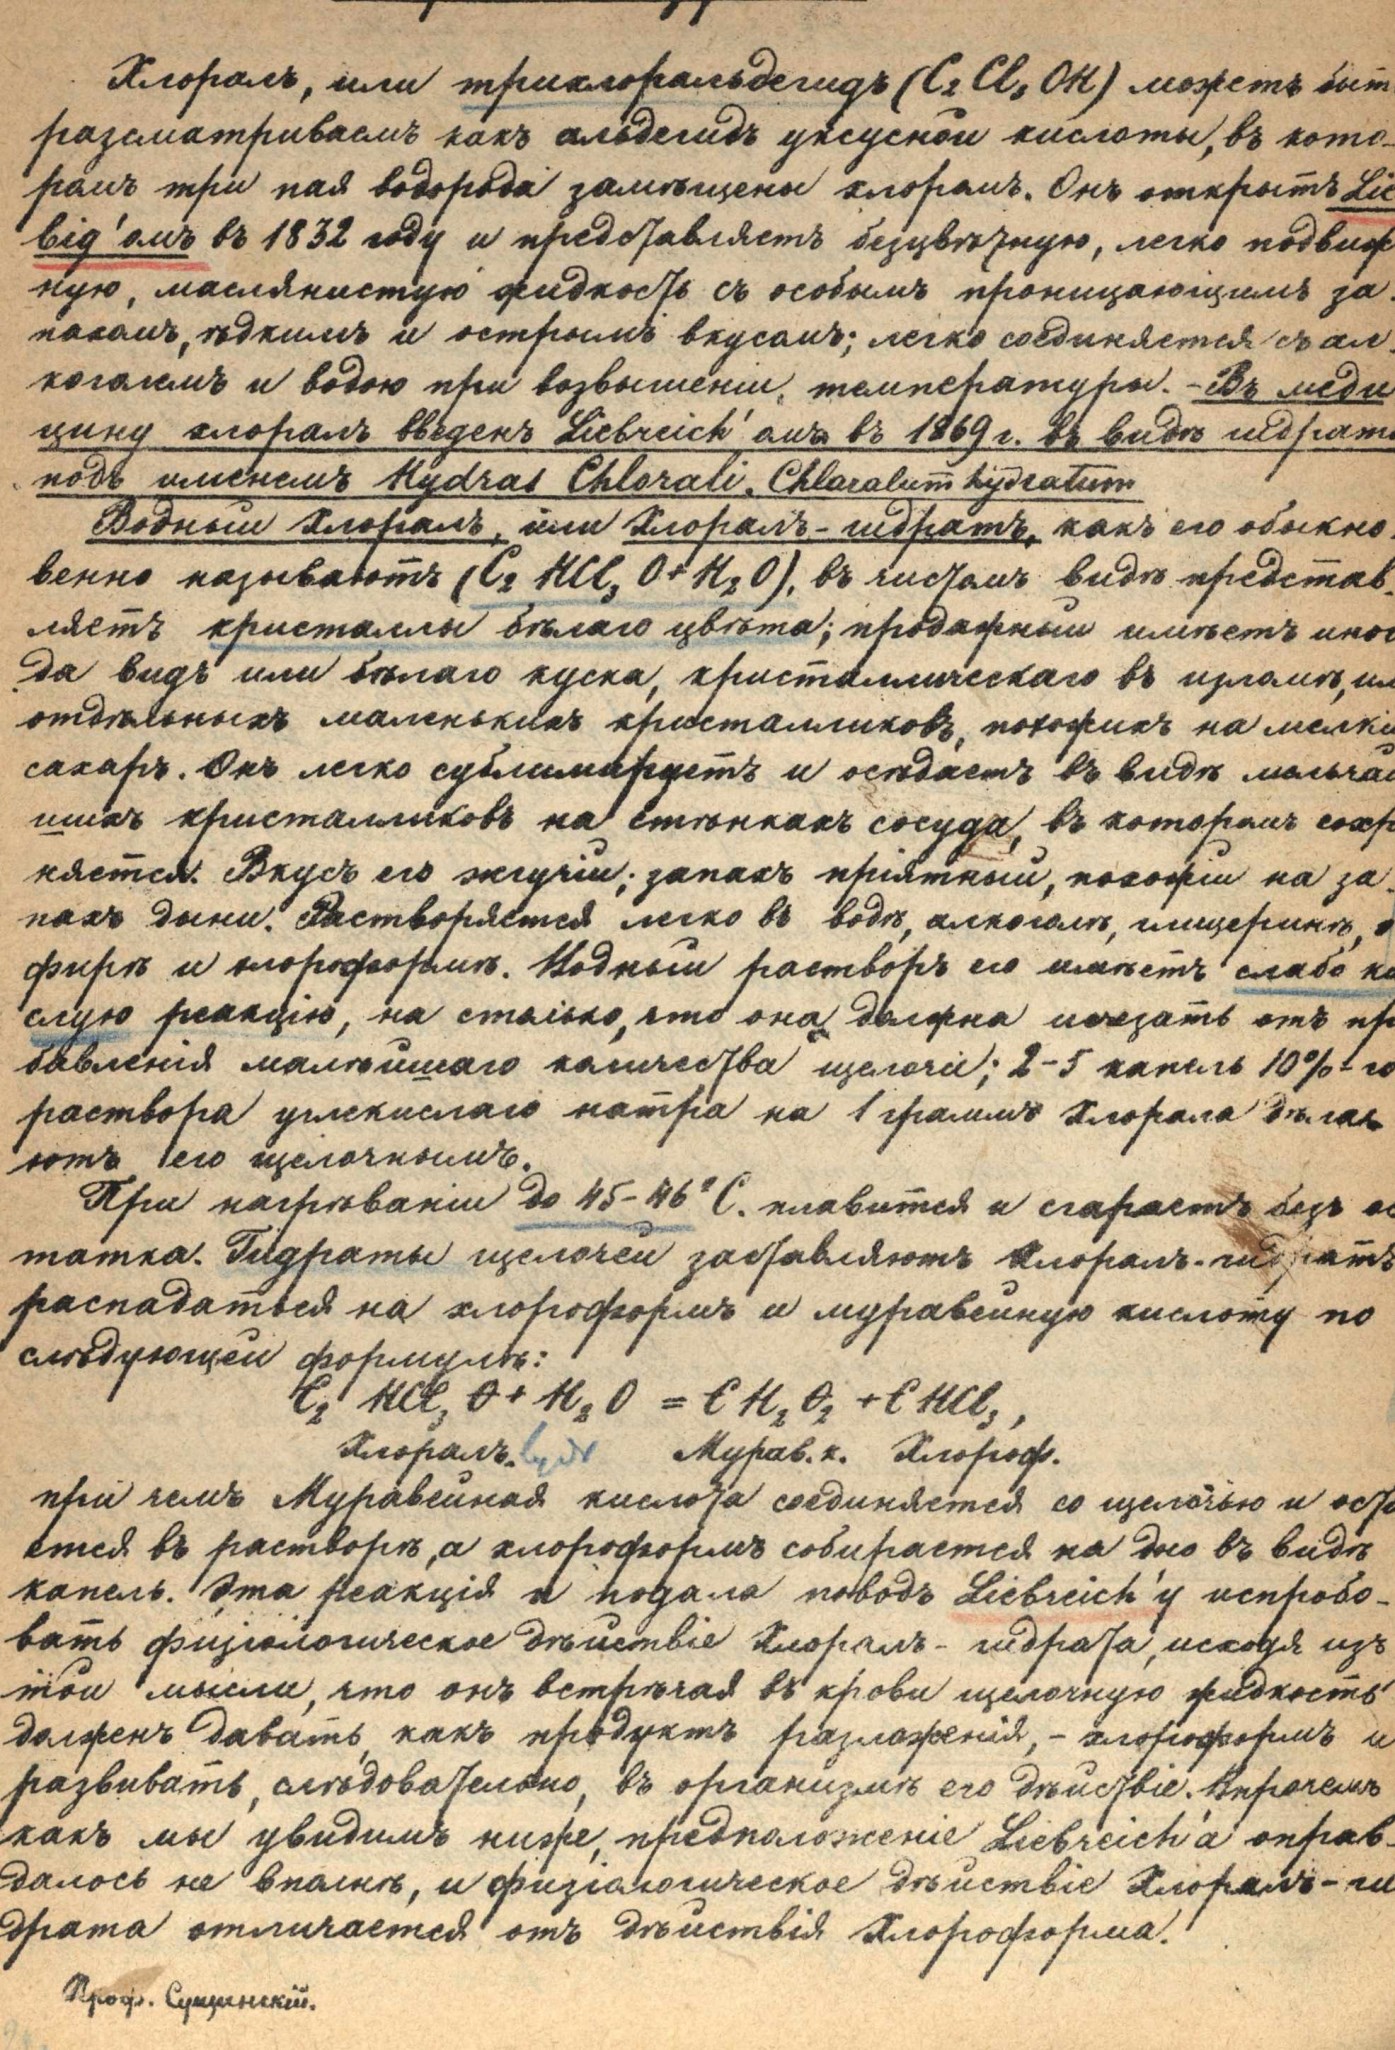 Хлоралъ, или трихлоральдегидъ (C₂ Cl₃ OH) можетъ быт
разсматриваемъ какъ альдегидъ уксусной кислоты, въ кото-
ромъ три пая водорода замѣщены хлоромъ. Онъ открытъ Lie
big'омъ въ 1832 году и представляетъ безцвѣтную, легко подвиж
ную, маслянистую жидкость съ особымъ проницающимъ за-
пахомъ, ѣдкимъ и острымъ вкусомъ; легко соединяется съ ал-
коголемъ и водою при возвышеніи температуры. - Въ меди
цину хлоралъ введенъ Liebreich'омъ въ 1869 г. въ видѣ гидрата
подъ именемъ Hydras Chlorali. Chloralum hydratum
Водный Хлоралъ, или Хлоралъ-гидратъ, какъ его обыкно-
венно называютъ (C₂ HCl₃ O + H₂O), въ чистомъ видѣ представ-
ляетъ кристаллы бѣлаго цвѣта; продажный имѣетъ иног
да видъ или бѣлаго куска, кристаллическаго въ изломѣ, ил
отдѣльныхъ маленькихъ кристалликовъ, похожихъ на мелкій
сахаръ. Онъ легко сублимируетъ и осѣдаетъ въ видѣ мельчай
шихъ кристалликовъ на стѣнкахъ сосуда, въ которомъ сохр
няется. Вкусъ его жгучій; запахъ пріятный, похожій на за-
пахъ дыни. Растворяется легко въ водѣ, алкоголѣ, глицеринѣ, э
фирѣ и хлороформѣ. Водный растворъ его имѣетъ слабо ки
слую реакцію, на столько, что она должна исчезать отъ при
бавленія малѣйшаго количества щелочи; 2-5 капель 10%-го
раствора углекислаго натра на 1 граммъ Хлорала дѣла-
ютъ его щелочнымъ.
При нагрѣваніи до 45-46° C. плавится и сгараетъ безъ ос
татка. Гидраты щелочей заставляютъ Хлоралъ-гидратъ
распадаться на хлороформъ и муравейную кислоту по
слѣдующей формулѣ:
C₂ HCl₃ O + H₂O = CH₂O₂ + CHCl₃,
Хлоралъ. Мурав. к. Хлороф.
при чемъ Муравейная кислота соединяется со щелочью и оста
ется въ растворѣ, а хлороформъ собирается на дно въ видѣ
капель. Эта реакція и подала поводъ Liebreich'у испробо-
вать физіологическое дѣйствіе Хлоралъ-гидрата, исходя изъ
той мысли, что онъ встрѣчая въ крови щелочную жидкость
долженъ давать, какъ продуктъ разложенія, - хлороформъ и
развивать, слѣдовательно, въ организмѣ его дѣйствіе. Впрочемъ
какъ мы увидимъ ниже, предположеніе Liebreich'а оправ-
далось не вполнѣ, и физіологическое дѣйствіе Хлоралъ-ги
драта отличается отъ дѣйствія Хлороформа.
Проф. Сущинскій.